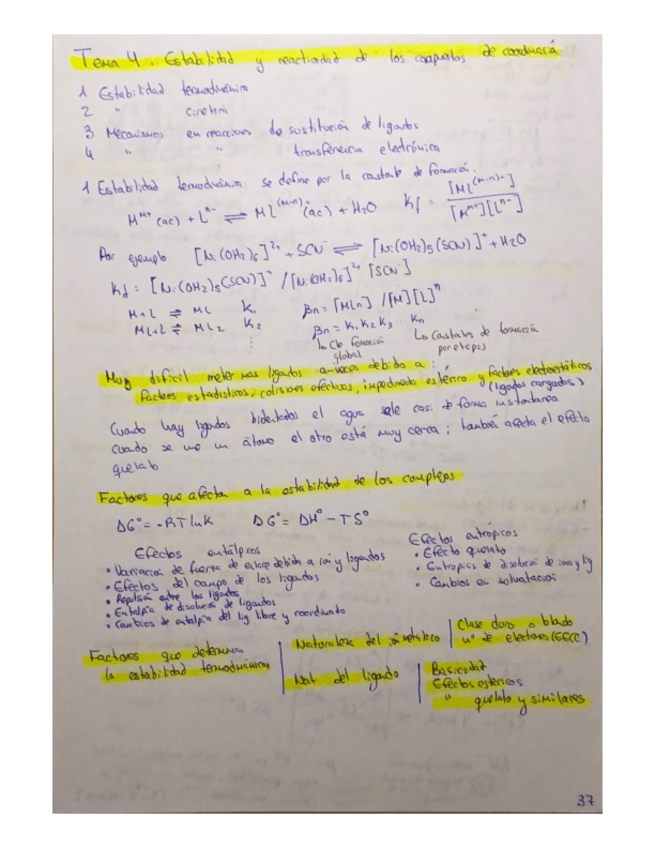 Tema 4. Estabilidad y reactividad de los compuestos de coordinació
1 Estabilidad termodinámica
2 " cinética
3 Mecanismos en reacciones de sustitución de ligandos
4 " " transferencia electrónica
1 Estabilidad termodinámica se define por la constante de formación.
M^m+ (ac) + L^n- ⇌ ML^(m-n)+ (ac) + H2O Kf = [ML^(m-n)+] / [M^m+][L^n-]
Por ejemplo [Ni(OH2)6]^2+ + SCN^- ⇌ [Ni(OH2)5(SCN)]^+ + H2O
Kf = [Ni(OH2)5(SCN)]^+ / [Ni(OH2)6]^2+ [SCN^-]
M+L ⇌ ML K1 βn = [MLn] / [M][L]^n
ML+L ⇌ ML2 K2 βn = K1 K2 K3 ... Kn
⋮ ↳ Cte formación global ↳ Constantes de formación por etapas
Muy difícil meter mas ligandos a veces debido a:
factores estadísticos, colisiones efectivas, impedimento estérico y factores electrostáticos (ligandos cargados)
Cuando hay ligandos bidentados el agua sale casi de forma instantanea
cuando se une un átomo el otro está muy cerca; también afecta el efecto
quelato
Factores que afecta a la estabilidad de los complejos
ΔG° = -RT lnK ΔG° = ΔH° - TS°
Efectos entálpicos
• Variación de fuerza de enlace debida a ión y ligandos
• Efectos del campo de los ligandos
• Repulsión entre los ligandos
• Entalpía de disolución de ligandos
• Cambios de entalpía del lig libre y coordinado
Efectos entrópicos
• Efecto quelato
• Entropías de disolución de iones y lig
• Cambios en solvatación
Factores que determinan la estabilidad termodinámica
Naturaleza del ión metálico
Clase duro o blando
nº de electrones (EECC)
Nat del ligando
Basicidad
Efectos estéricos
" quelato y similares
37